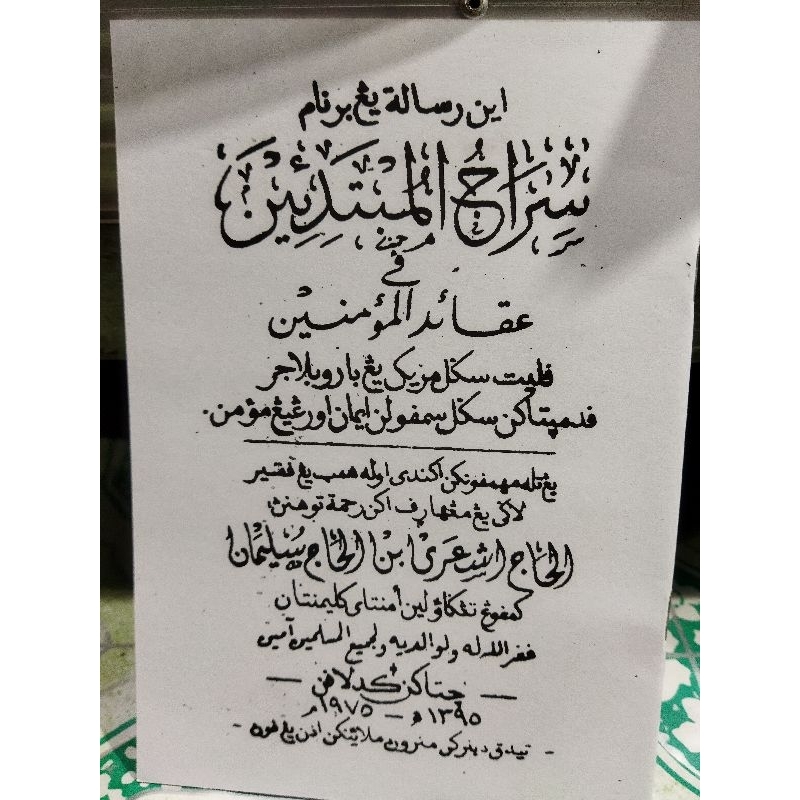 اين رسالة يڠ برنام
سِرَاجُ الْمُبْتَدِئِيْنَ
في
عقائد المؤمنين
ڤليت سكل مريك يڠ بارو بلاجر
ڤد مپتاكن سكل سمڤولن ايمان اورڠيڠ مؤمن.
يڠ تله مهمڤونكن اكندى اوله همب يڠ فقير
لاݢي يڠ مڠهارڤ اكن رحمة توهنڽ
الحاج اشعرى ابن الحاج سليمان
كمڤوڠ تڠكاؤلين أمنتاى كليمنتان
غفر الله له ولوالديه ولجميع المسلمين آمين
— چتاكن كدلاڤن —
١٣٩٥ ه‍ – ١٩٧٥ م
- تيدق دبنركن منيرو ملاينكن اذن يڠ ڤوڽ -